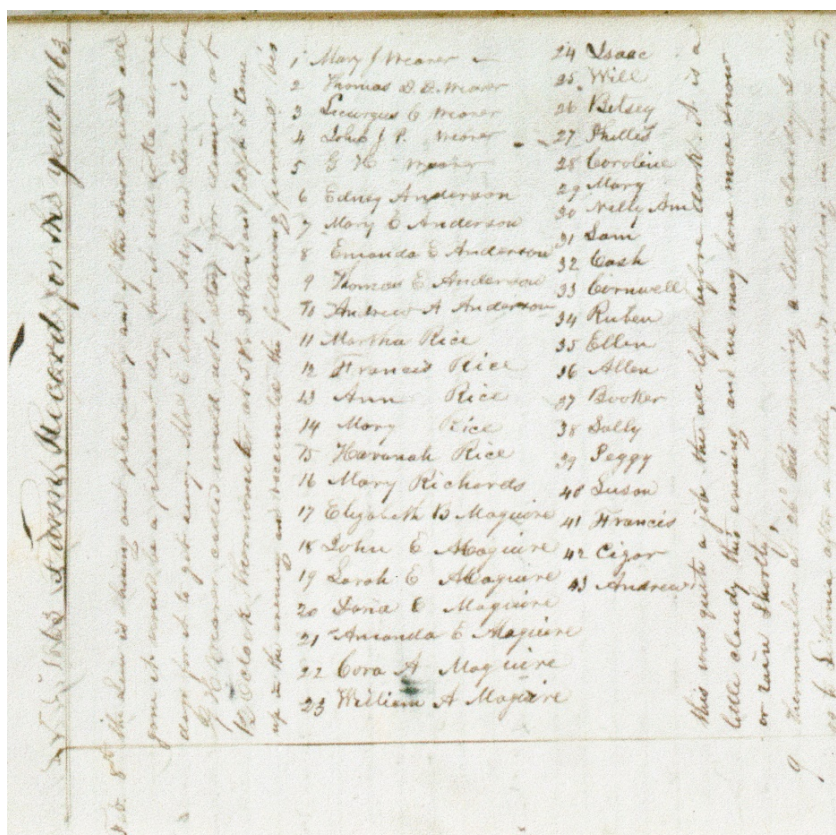 1863 Farm Record for this year 1863
8th the Sun is shining out pleasantly and if the snow was all
gone it would be a pleasant day but it will take several
days for it to get away. Mrs Edney Ady and Tom is here
G H Weaver called would not stay for dinner at
12 Oclock thermometer at 58.
up in the evening and vaccinated the following persons
1 Mary J Weaver
2 Thomas D D. Weaver
3 Licurgus C Weaver
4 John J P. Weaver
5 G H Weaver
6 Edney Anderson
7 Mary E Anderson
8 Emanda E Anderson
9 Thomas E Anderson
10 Andrew A Anderson
11 Martha Rice
12 Francis Rice
13 Ann Rice
14 Mary Rice
15 Havanah Rice
16 Mary Richards
17 Elyzabeth B Maguire
18 John E Maguire
19 Sarah E Maguire
20 E Maguire
21 Amanda E Maguire
22 Cora A Maguire
23 William A Maguire
24 Isaac
25 Will
26 Betsey
27 Phillis
28 Caroline
29 Mary
30 Nelly Ann
31 Sam
32 Cash
33 Cornwell
34 Ruben
35 Ellen
36 Allen
37 Booker
38 Sally
39 Peggy
40 Suson
41 Francis
42 Cigar
43 Andrew
this was quite a job the all left before dark. it is a
little cloudy this evening and we may have more snow
or rain shortly
9 Thermometer at this morning a little cloudy
after a little hands working in